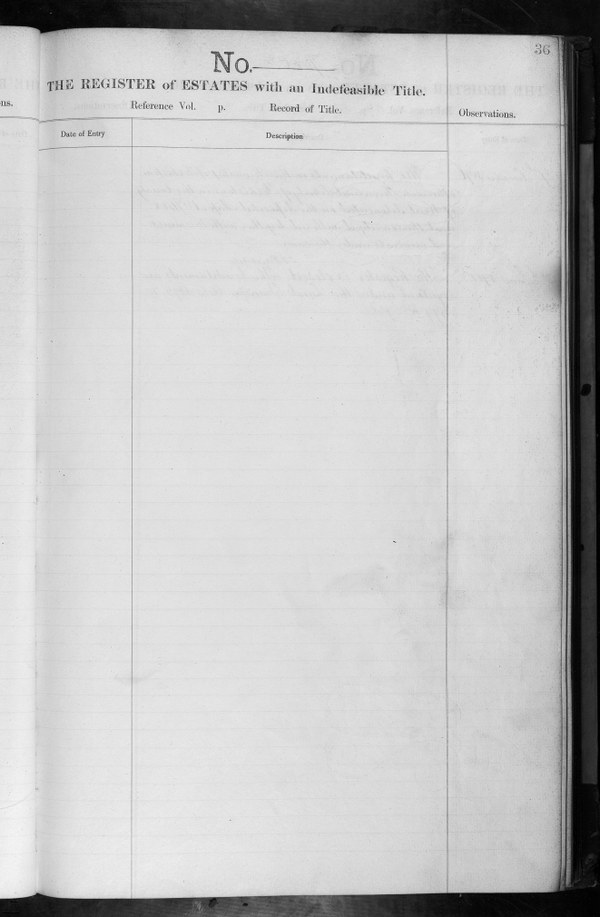 36
No.
THE REGISTER of ESTATES with an Indefeasible Title.
ns.
Reference Vol. p. Record of Title.
Observations.
Date of Entry
Description